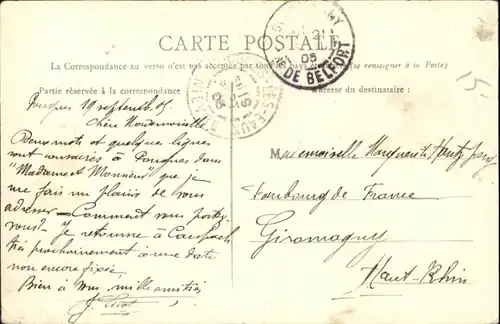 CARTE POSTALE
La Correspondance au verso n'est pas acceptée par tous les pays (se renseigner à la Poste)
Partie réservée à la correspondance
Adresse du destinataire :
GIROMAGNY
21
05
DE BELFORT
LES-EAUX
19
05
15-
Pougues 19 septemb. 05
Chère Mademoiselle
Deux mots et quelques lignes
sont à Pougues dans
"Madame et Monsieur" que je
me fais un plaisir de vous
adresser - Comment vous portez
vous? Je retourne à
très prochainement à une date
non encore fixée.
Bien à vous, mille amitiés
Mademoiselle Marguerite
Faubourg de France
Giromagny
Haut-Rhin